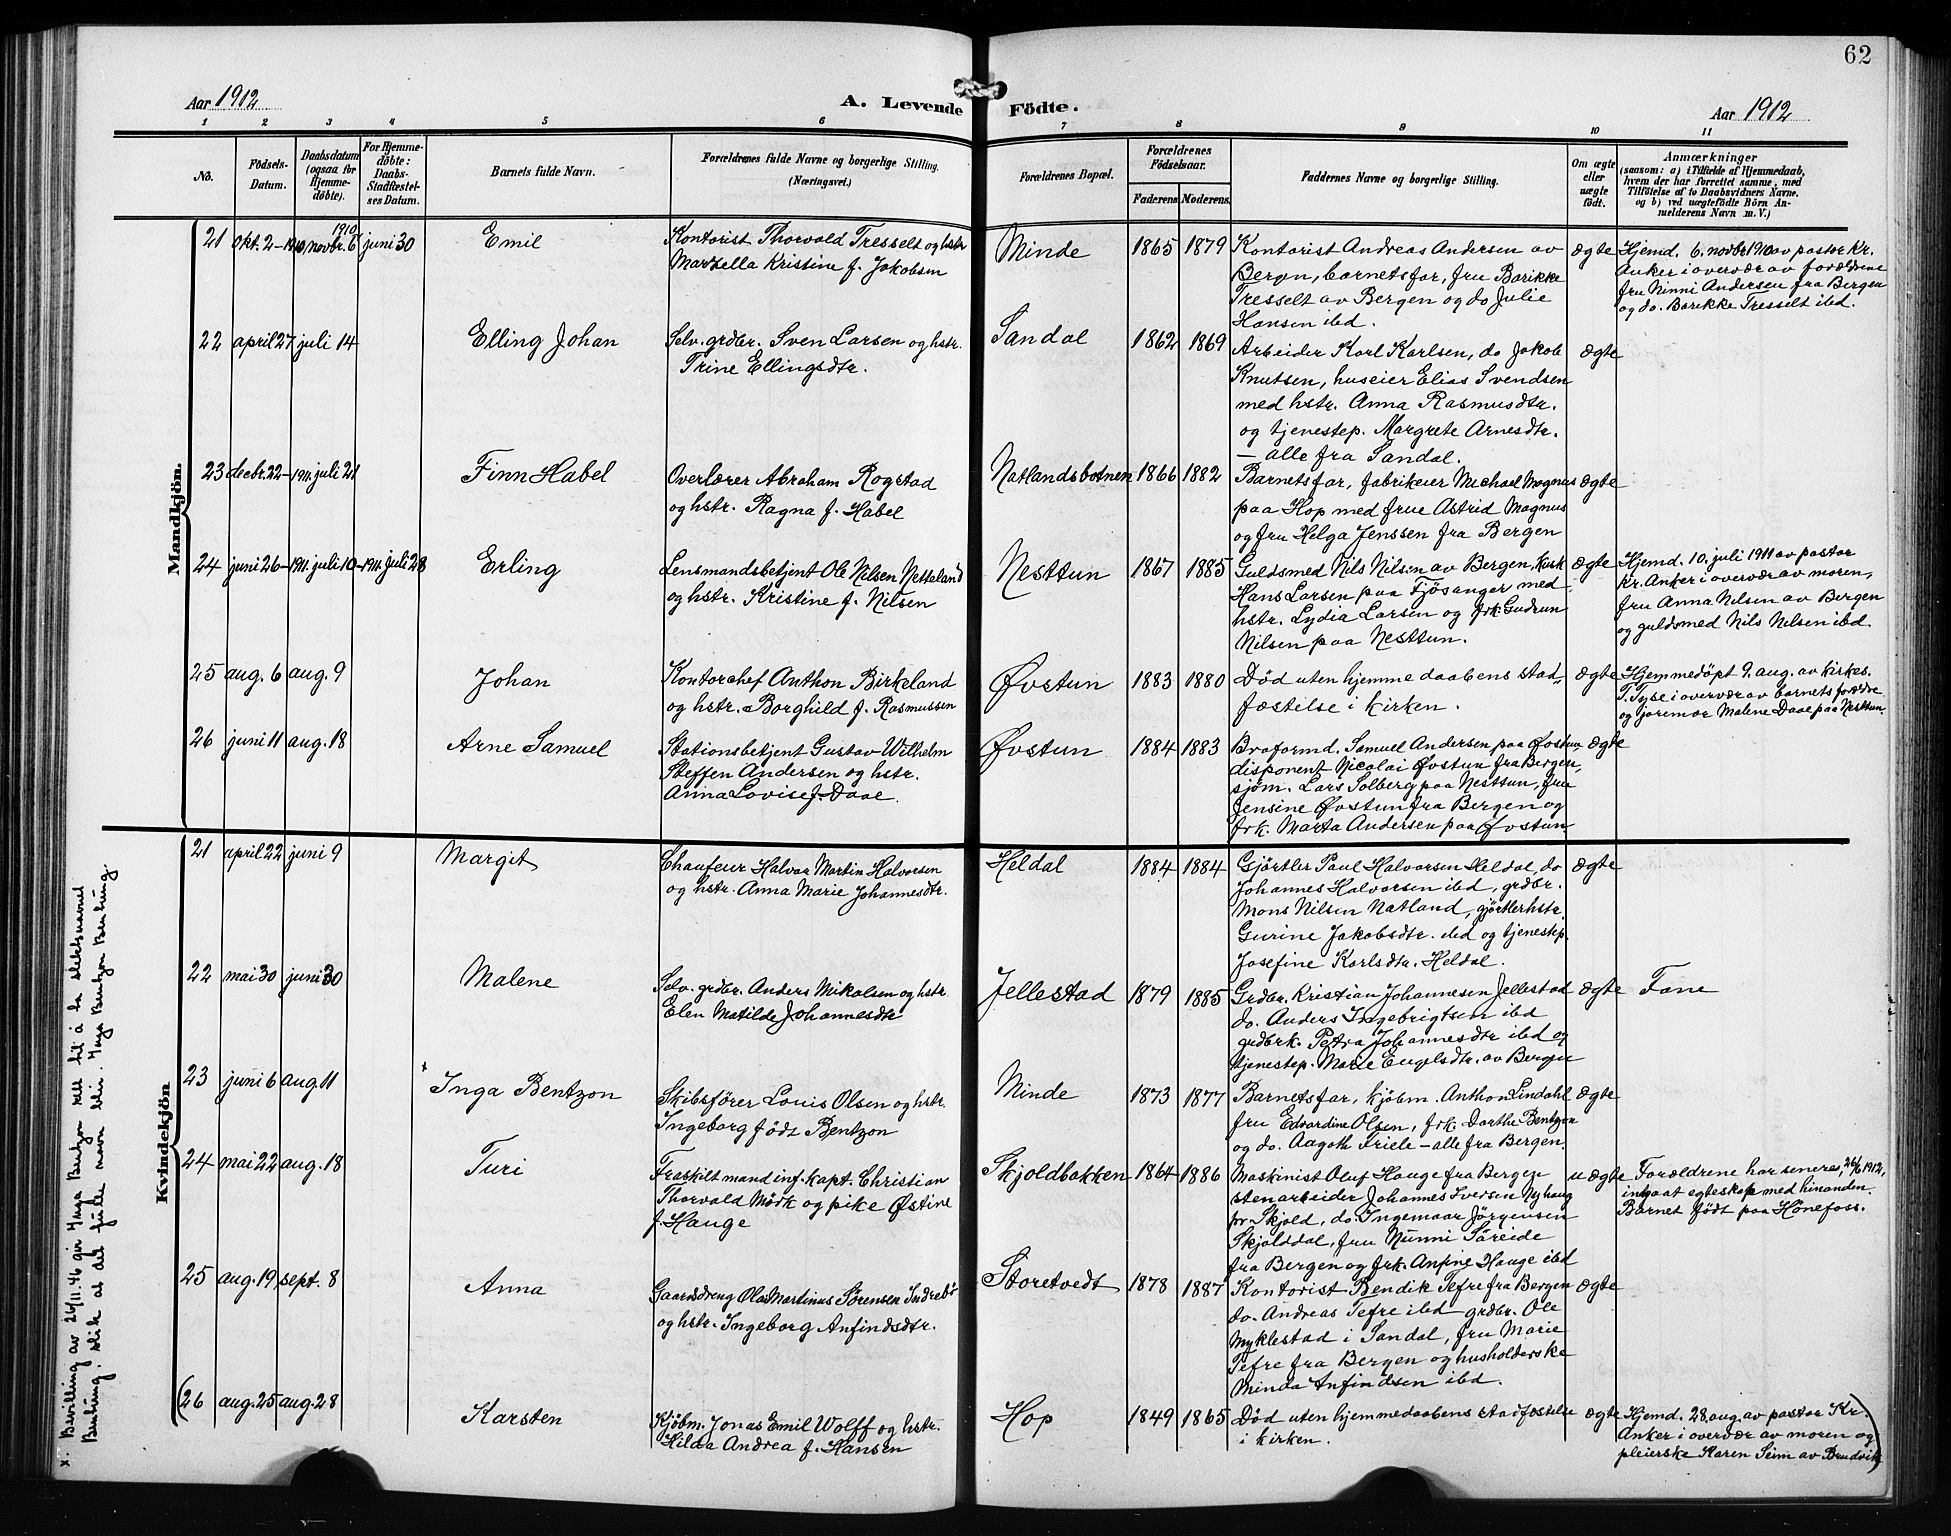 62
Aar 1912
A. Levende Födte.
Aar 1912
1 2 3 4 5 6 7 8 9 10 11
No.
Födsels-
Datum.
Daabsdatum
(ogsaa for
Hjemme-
döbte).
For Hjemme-
döbte:
Daabs-
Stadfæstel-
ses Datum.
Barnets fulde Navn.
Forældrenes fulde Navne og borgerlige Stilling.
(Næringsvei.)
Forældrenes Bopæl.
Forældrenes
Födselsaar.
Faderens Moderens
Faddernes Navne og borgerlige Stilling.
Om ægte
eller
uægte
födt.
Anmærkninger
(saasom: a) i Tilfælde af Hjemmedaab,
hvem der har forrettet samme, med
Tilföielse af to Daabsvidners Navne,
og b) ved uægtefödte Börn An-
melderens Navn m. V.)
Mandkjön.
21 okt. 2–1910 novbr. 6 1910 juni 30
Emil
Kontorist Thorvald Tresselt og hstr
Marsella Kristine f. Jakobsen
Minde
1865 1879
Kontorist Andreas Andersen av
Bergen, barnets far, fru Barikke
Tresselt av Bergen og do Julie
Hansen ibd.
ægte
Hjemd. 6. novbr 1910 av pastor Kr.
Anker i overvær av forældrene
fru Ninni Andersen fra Bergen
og do. Barikke Tresselt ibd.
22 april 27 juli 14
Elling Johan
Selv. grdbr. Sven Larsen og hstr.
Trine Ellingsdtr.
Sandal
1862 1869
Arbeider Karl Karlsen, do Jakob
Knutsen, huseier Elias Svendsen
med hstr. Anna Rasmusdtr.
og tjenestep. Margrete Arnesdtr.
– alle fra Sandal.
ægte
23 decbr. 22–1911 juli 21
Finn Habel
Overlærer Abraham Rogstad
og hstr. Ragna f. Habel
Natlandsbotnen
1866 1882
Barnets far, fabrikeier Michael Magnus
paa Hop med frue Astrid Magnus
og fru Helga Jenssen fra Bergen
ægte
24 juni 26–1911 juli 10–1911 juli 28
Erling
Lensmandsbetjent Ole Nilsen Nesteland
og hstr. Kristine f. Nilsen
Nesttun
1867 1885
Guldsmed Nils Nilsen av Bergen, kusk
Hans Larsen paa Fjösanger med
hstr. Lydia Larsen og frk. Gudrun
Nilsen paa Nesttun.
ægte
Hjemd. 10. juli 1911 av pastor
Kr. Anker i overvær av moren,
fru Anna Nilsen av Bergen
og guldsmed Nils Nilsen ibd.
25 aug. 6 aug. 9
Johan
Kontorchef Anthon Birkeland
og hstr. Borghild f. Rasmussen
Øvstun
1883 1880
Død uten hjemmedaabens stad-
fæstelse i kirken.
ægte
Hjemmedöpt 9. aug. av kirkes.
T. Tyse i overvær av barnets forældre
og joremor Malene Daae paa Nesttun.
26 juni 11 aug. 18
Arne Samuel
Stationsbetjent Gustav Wilhelm
Steffen Andersen og hstr.
Anna Lovise f. Daae.
Øvstun
1884 1883
Braformd. Samuel Andersen paa Øvstun
disponent Nicolai Øvstun fra Bergen,
sjöm. Lars Solberg paa Nesttun, fru
Jensine Øvstun fra Bergen og
frk. Marta Andersen paa Øvstun
ægte
Kvindekjön
21 april 22 juni 9
Margit
Chaufeur Halvar Martin Halvorsen
og hstr. Anna Marie Johannesdtr.
Heldal
1884 1884
Gjörtler Paul Halvorsen Heldal, do
Johannes Halvorsen ibd, grdbr.
Mons Nilsen Natland, gjörtlerhstr.
Gurine Jakobsdtr. ibd og tjenestep.
Josefine Karlsdtr. Heldal.
ægte
22 mai 30 juni 30
Malene
Selv. grdbr. Anders Mikalsen og hstr
Elen Matilde Johannesdtr
Jellestad
1879 1885
Grdbr. Kristian Johannesen Jellestad
do. Anders Ingebrigtsen ibd
grdbrk. Petra Johannesdtr ibd og
tjenestep. Marie Engelsdtr. av Bergen
ægte
Fane
23 juni 6 aug. 11
x Inga Bentzon
Skibsförer Louis Olsen og hstr.
Ingeborg födt Bentzon
Minde
1873 1877
Barnets far, kjöbm. Anthon Lindahl
fru Edvardine Olsen, frk. Dorthe Bentzon
og do. Aagoth Friele – alle fra Bergen.
ægte
24 mai 22 aug. 18
Turi
Fraskilt mand inf. kapt. Christian
Thorvald Mörk og pike Østine
f. Hauge
Skjoldbakken
1864 1886
Maskinist Oluf Hauge fra Bergen
stenarbeider Johannes Iversen Nyhaug
pr Skjold, do. Ingemaar Jörgensen
Skjolddal, fru Nunni Söreide
fra Bergen og frk. Anfine Hauge ibd
u ægte
Forældrene har senere, 26/6 1912,
ingaat egteskap med hinanden.
Barnet födt paa Hönefoss.
25 aug. 19 sept. 8
Anna
Gaardsdreng Olai Martinus Sörensen Indrebö
og hstr. Ingeborg Anfindsdtr.
Storetvedt
1878 1887
Kontorist Bendik Tefre fra Bergen
do. Andreas Tefre ibd grdbr. Ole
Myklestad i Sandal, fru Marie
Tefre fra Bergen og husholderske
Minda Anfindsen ibd.
ægte
(26 aug. 25 aug. 28
Karsten
Kjöbm. Jonas Emil Wolff og hstr.
Hilda Andrea f. Hansen
Hop
1849 1865
Død uten hjemmedaabens stadfæstelse
i kirken.
ægte
Hjemd. 28. aug. av pastor Kr.
Anker i overvær av moren og
pleierske Karen Seim av Bruvik)
x: Bevilling av 24.11.46 gir Inga Bentzon rett til å ta slektsnavnet
Bentung, slik at det fulle navn blir: Inga Bentzon Bentung.